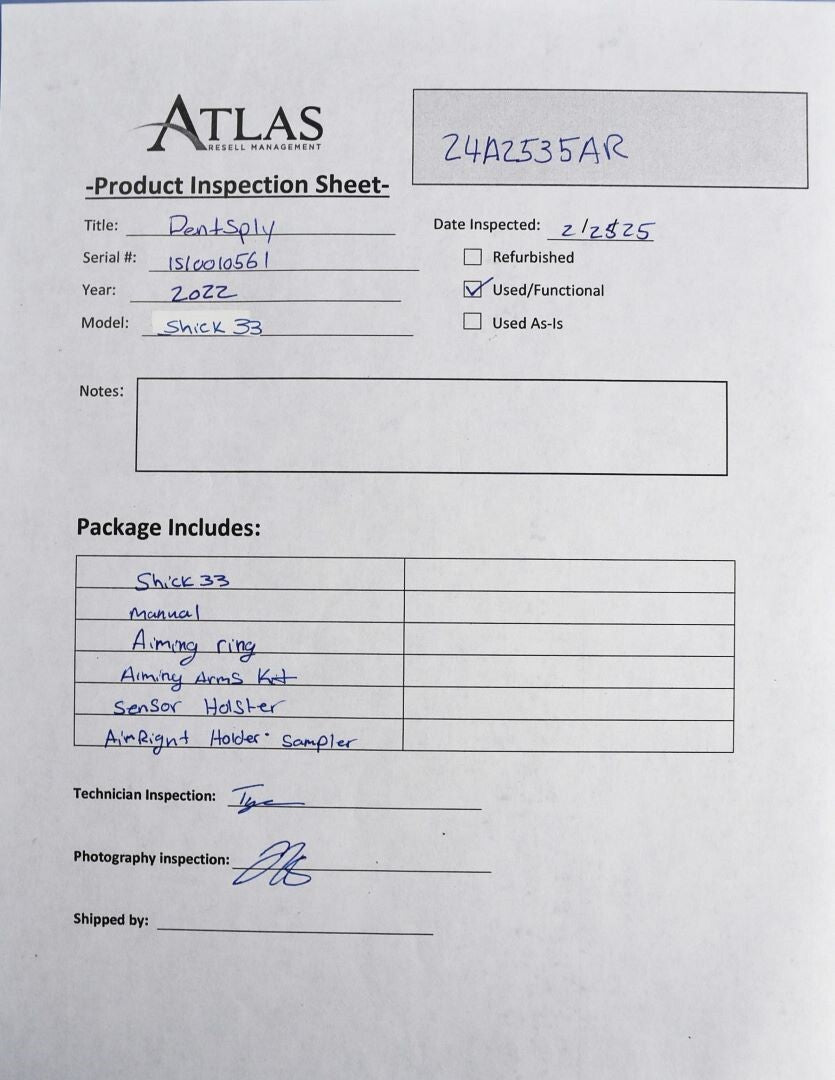 ATLAS
RESELL MANAGEMENT
24A2535AR
-Product Inspection Sheet-
Title: DentSply
Date Inspected: 2/2525
Serial #: 1S10010561
Refurbished
Year: 2022
Used/Functional
Model: Shick 33
Used As-Is
Notes:
Package Includes:
Shick 33
Manual
Aiming ring
Aiming Arms Kit
Sensor Holster
AimRight Holder Sampler
Technician Inspection:
Photography inspection:
Shipped by: